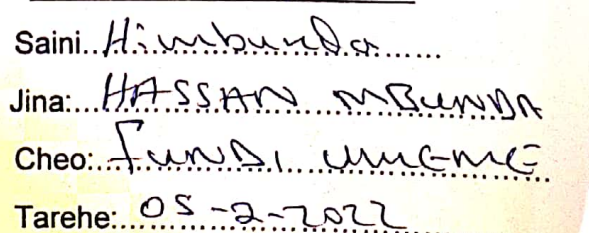 Saini..Himbunda......
Jina:...HASSAN MBUNDA
Cheo:..FUNDI UMEME
Tarehe:...05-2-2022